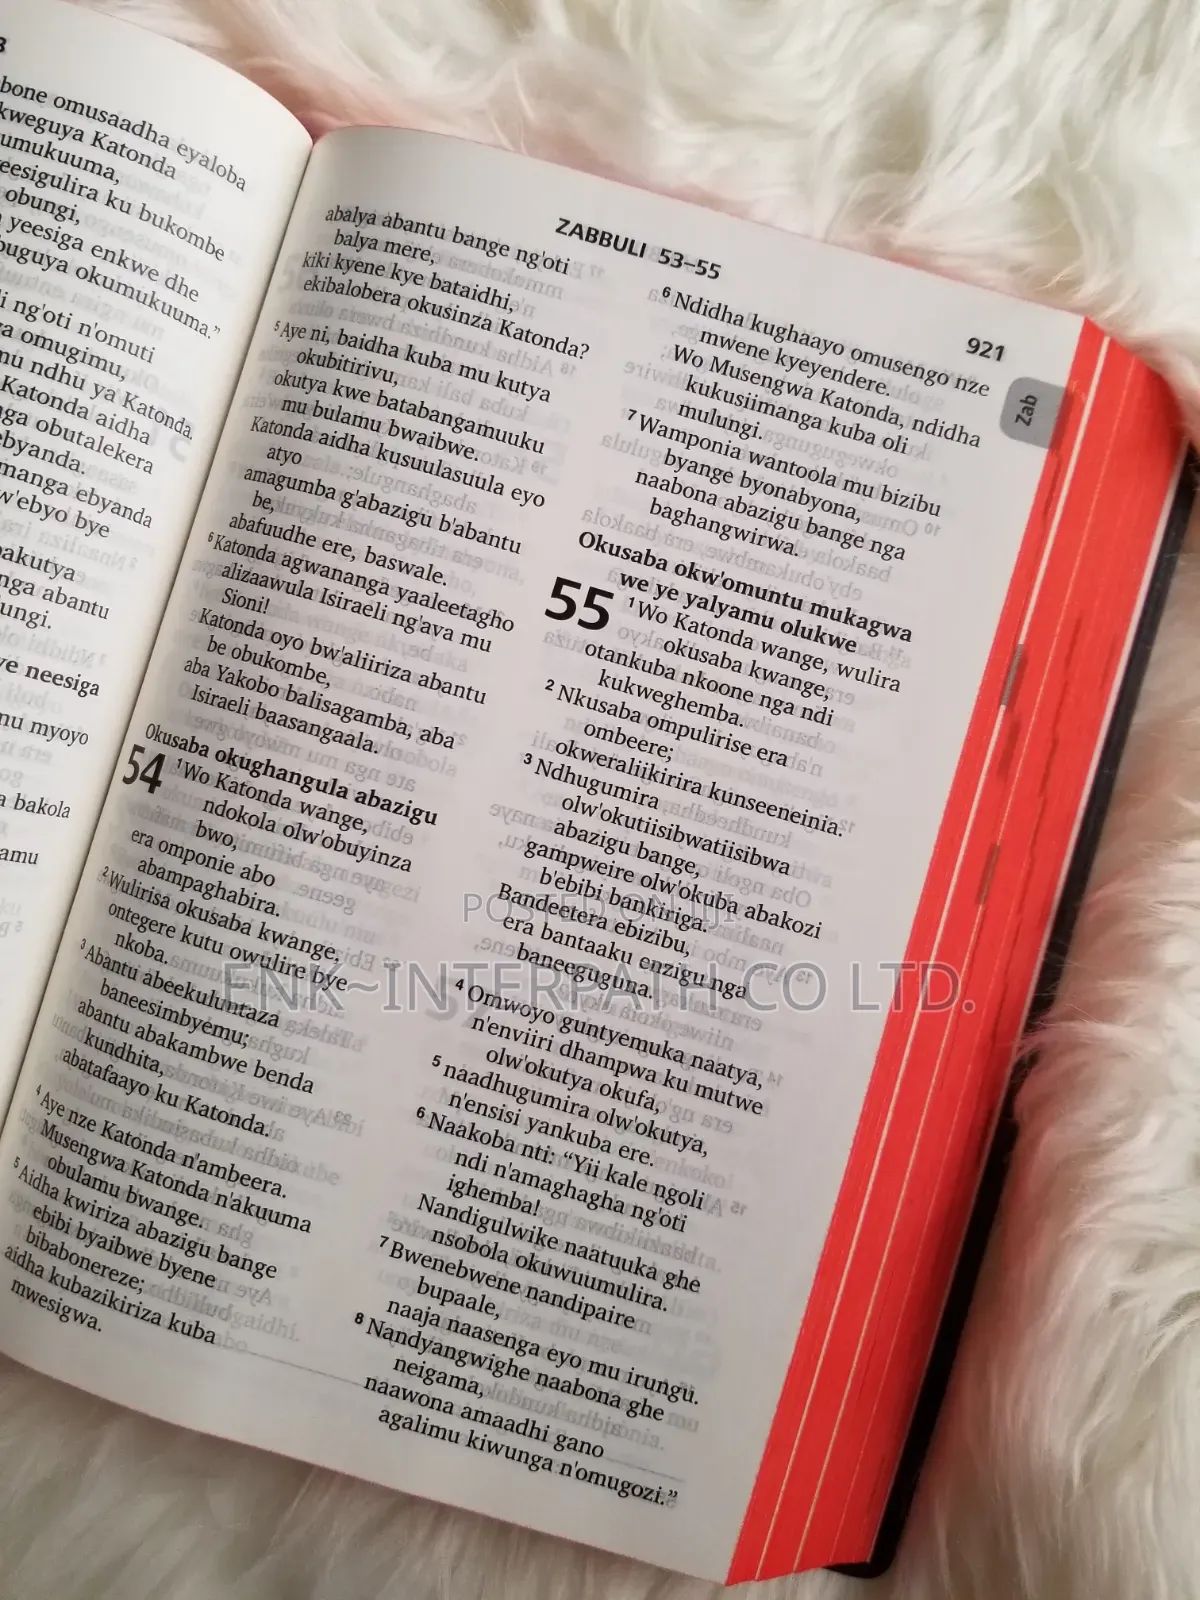 bone omusaadha eyaloba
kweguya Katonda
umukuuma,
eesigulira ku bukombe
obungi,
yeesiga enkwe dhe
buguya okumukuuma."
li ng'oti n'omuti
ya omugimu,
mu ndhu ya Katonda.
Katonda aidha
nga obutalekera
ebyanda.
manga ebyanda
w'ebyo bye
bakutya
nga abantu
ungi.
ye neesiga
mu myoyo
a bakola
amu
ZABBULI 53–55
921
Zab
abalya abantu bange ng'oti
balya mere,
kiki kyene kye bataidhi,
ekibalobera okusinza Katonda?
5 Aye ni, baidha kuba mu kutya
okubitirivu,
okutya kwe batabangamuuku
mu bulamu bwaibwe.
Katonda aidha kusuulasuula eyo
atyo
amagumba g'abazigu b'abantu
be,
abafuudhe ere, baswale.
6 Katonda agwananga yaaleetagho
alizaawula Isiraeli ng'ava mu
Sioni!
Katonda oyo bw'aliiriza abantu
be obukombe,
aba Yakobo balisagamba, aba
Isiraeli baasangaala.
Okusaba okughangula abazigu
54 1 Wo Katonda wange,
ndokola olw'obuyinza
bwo,
era omponie abo
abampaghabira.
2 Wulirisa okusaba kwange,
ontegere kutu owulire bye
nkoba.
3 Abantu abeekuluntaza
baneesimbyemu;
abantu abakambwe benda
kundhita,
abatafaayo ku Katonda.
4 Aye nze Katonda n'ambeera.
Musengwa Katonda n'akuuma
obulamu bwange.
5 Aidha kwiriza abazigu bange
ebibi byaibwe byene
bibabonereze;
aidha kubazikiriza kuba
mwesigwa.
6 Ndidha kughaayo omusengo nze
mwene kyeyendere.
Wo Musengwa Katonda, ndidha
kukusiimanga kuba oli
mulungi.
7 Wamponia wantoola mu bizibu
byange byonabyona,
naabona abazigu bange nga
baghangwirwa.
Okusaba okw'omuntu mukagwa
we ye yalyamu olukwe
55 1 Wo Katonda wange, wulira
okusaba kwange,
otankuba nkoone nga ndi
kukweghemba.
2 Nkusaba ompulirise era
ombeere;
okweraliikirira kunseeneinia.
3 Ndhugumira
olw'okutiisibwatiisibwa
abazigu bange,
gampweire olw'okuba abakozi
b'ebibi bankiriga.
Bandeetera ebizibu,
era bantaaku enzigu nga
baneeguguna.
4 Omwoyo guntyemuka naatya,
n'enviiri dhampwa ku mutwe
olw'okutya okufa,
5 naadhugumira olw'okutya,
n'ensisi yankuba ere.
6 Naakoba nti: "Yii kale ngoli
ndi n'amaghagha ng'oti
ighemba!
Nandigulwike naatuuka ghe
nsobola okuwuumulira.
7 Bwenebwene nandipaire
bupaale,
naaja naasenga eyo mu irungu.
8 Nandyangwighe naabona ghe
neigama,
naawona amaadhi gano
agalimu kiwunga n'omugozi."
POSTED ON JIJI
ENK~INTERPATH CO LTD.